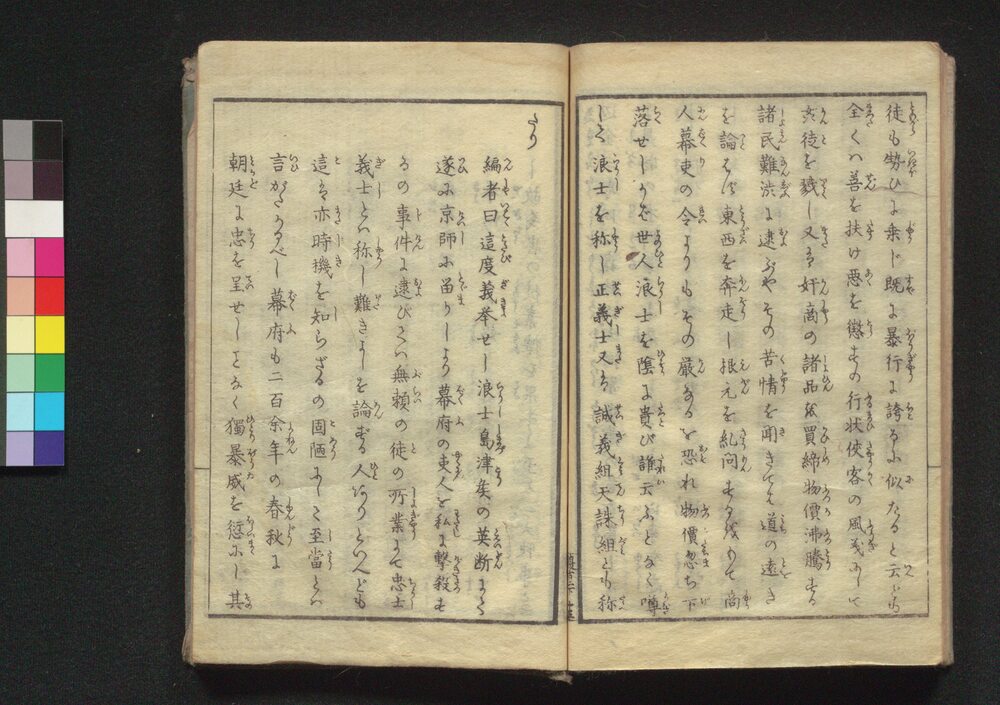 徒も勢ひに乗じ既に暴行に誇るに似たると云ども
全くハ善を扶け悪を懲すの行状侠客の風義にして
奸徒を戮し又は奸商の諸品を買締物價沸騰する
諸民難渋に逮ぶやその苦情を聞きては道の遠き
を論ぜず東西を奔走し根元を糺問するを以て商
人幕吏の令よりもその厳なるを恐れ物價忽ち下
落せしかば世人浪士を陰に貴び誰云ふとなく噂
して浪士を称し正義士又は誠義組天誅組とも称
たり
編者曰這度義挙せし浪士島津矦の英断による
遂に京師に留りしより幕府の吏人を私に撃殺す
るの事件に逮びてハ無頼の徒の所業にて忠士
義士とハ称し難きよしを論ずる人ありといへども
這は亦時機を知らざるの固陋にして至當とハ
言がたかるべし幕府も二百余年の春秋に
朝廷に忠を呈せしことなく獨暴威を恣にし其